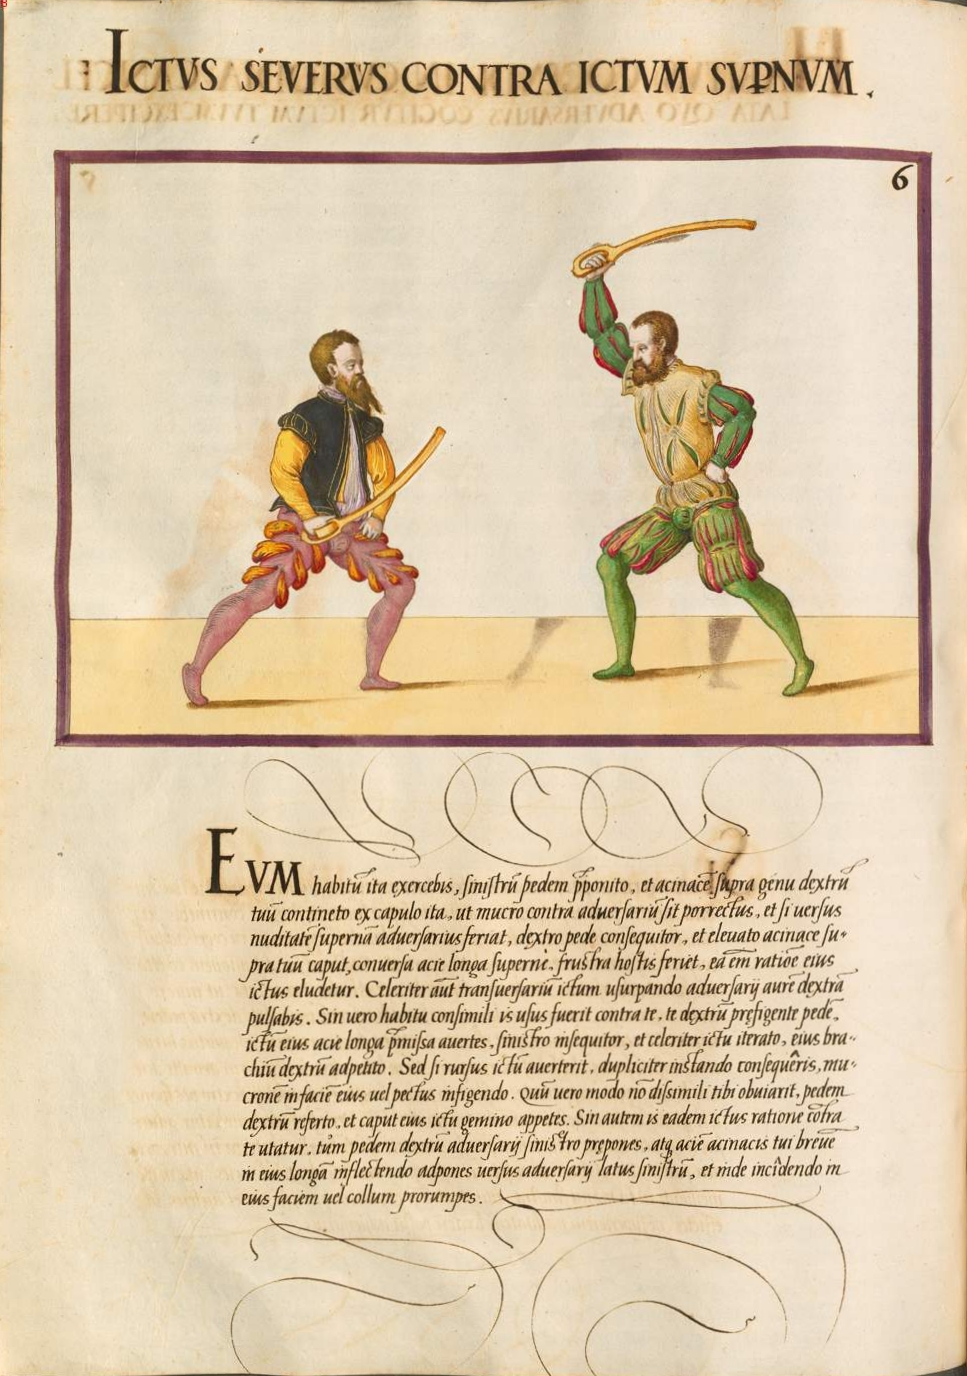 ICTVS SEVERVS CONTRA ICTVM SVꝐNVM.
6
EVM habitū ita exercebis, sinistrū pedem p̄ponito, et acinacē supra genu dextrū
tuū contineto ex capulo ita, ut mucro contra aduersariū sit porrectus, et si uersus
nuditatē supernā aduersarius feriat, dextro pede consequitor, et eleuato acinace su-
pra tuū caput, conuersa acie longa superne, frustra hostis feriet, ea em̄ ratioē eius
ictus eludetur. Celeriter aūt transuersariū ictum usurpando aduersarij aurē dextrā
pulsabis. Sin uero habitu consimili is usus fuerit contra te, te dextrū pręfigente pedē,
ictū eius acie longa p̄missa auertes, sinistro insequitor, et celeriter ictu iterato, eius bra-
chiū dextrū adpetito. Sed si rursus ictū auerterit, dupliciter instando consequêris, mu-
cronē in faciē eius uel pectus infigendo. Quū uero modo nō dissimili tibi obuiarit, pedem
dextrū referto, et caput eius ictu gemino appetes. Sin autem is eadem ictus ratione cōtra
te utatur, tùm pedem dextrū aduersarij sinistro prępones, atq acie acinacis tui breuē
in eius longā inflectendo adpones uersus aduersarij latus sinistrū, et inde incidendo in
eius faciem uel collum prorumpes.